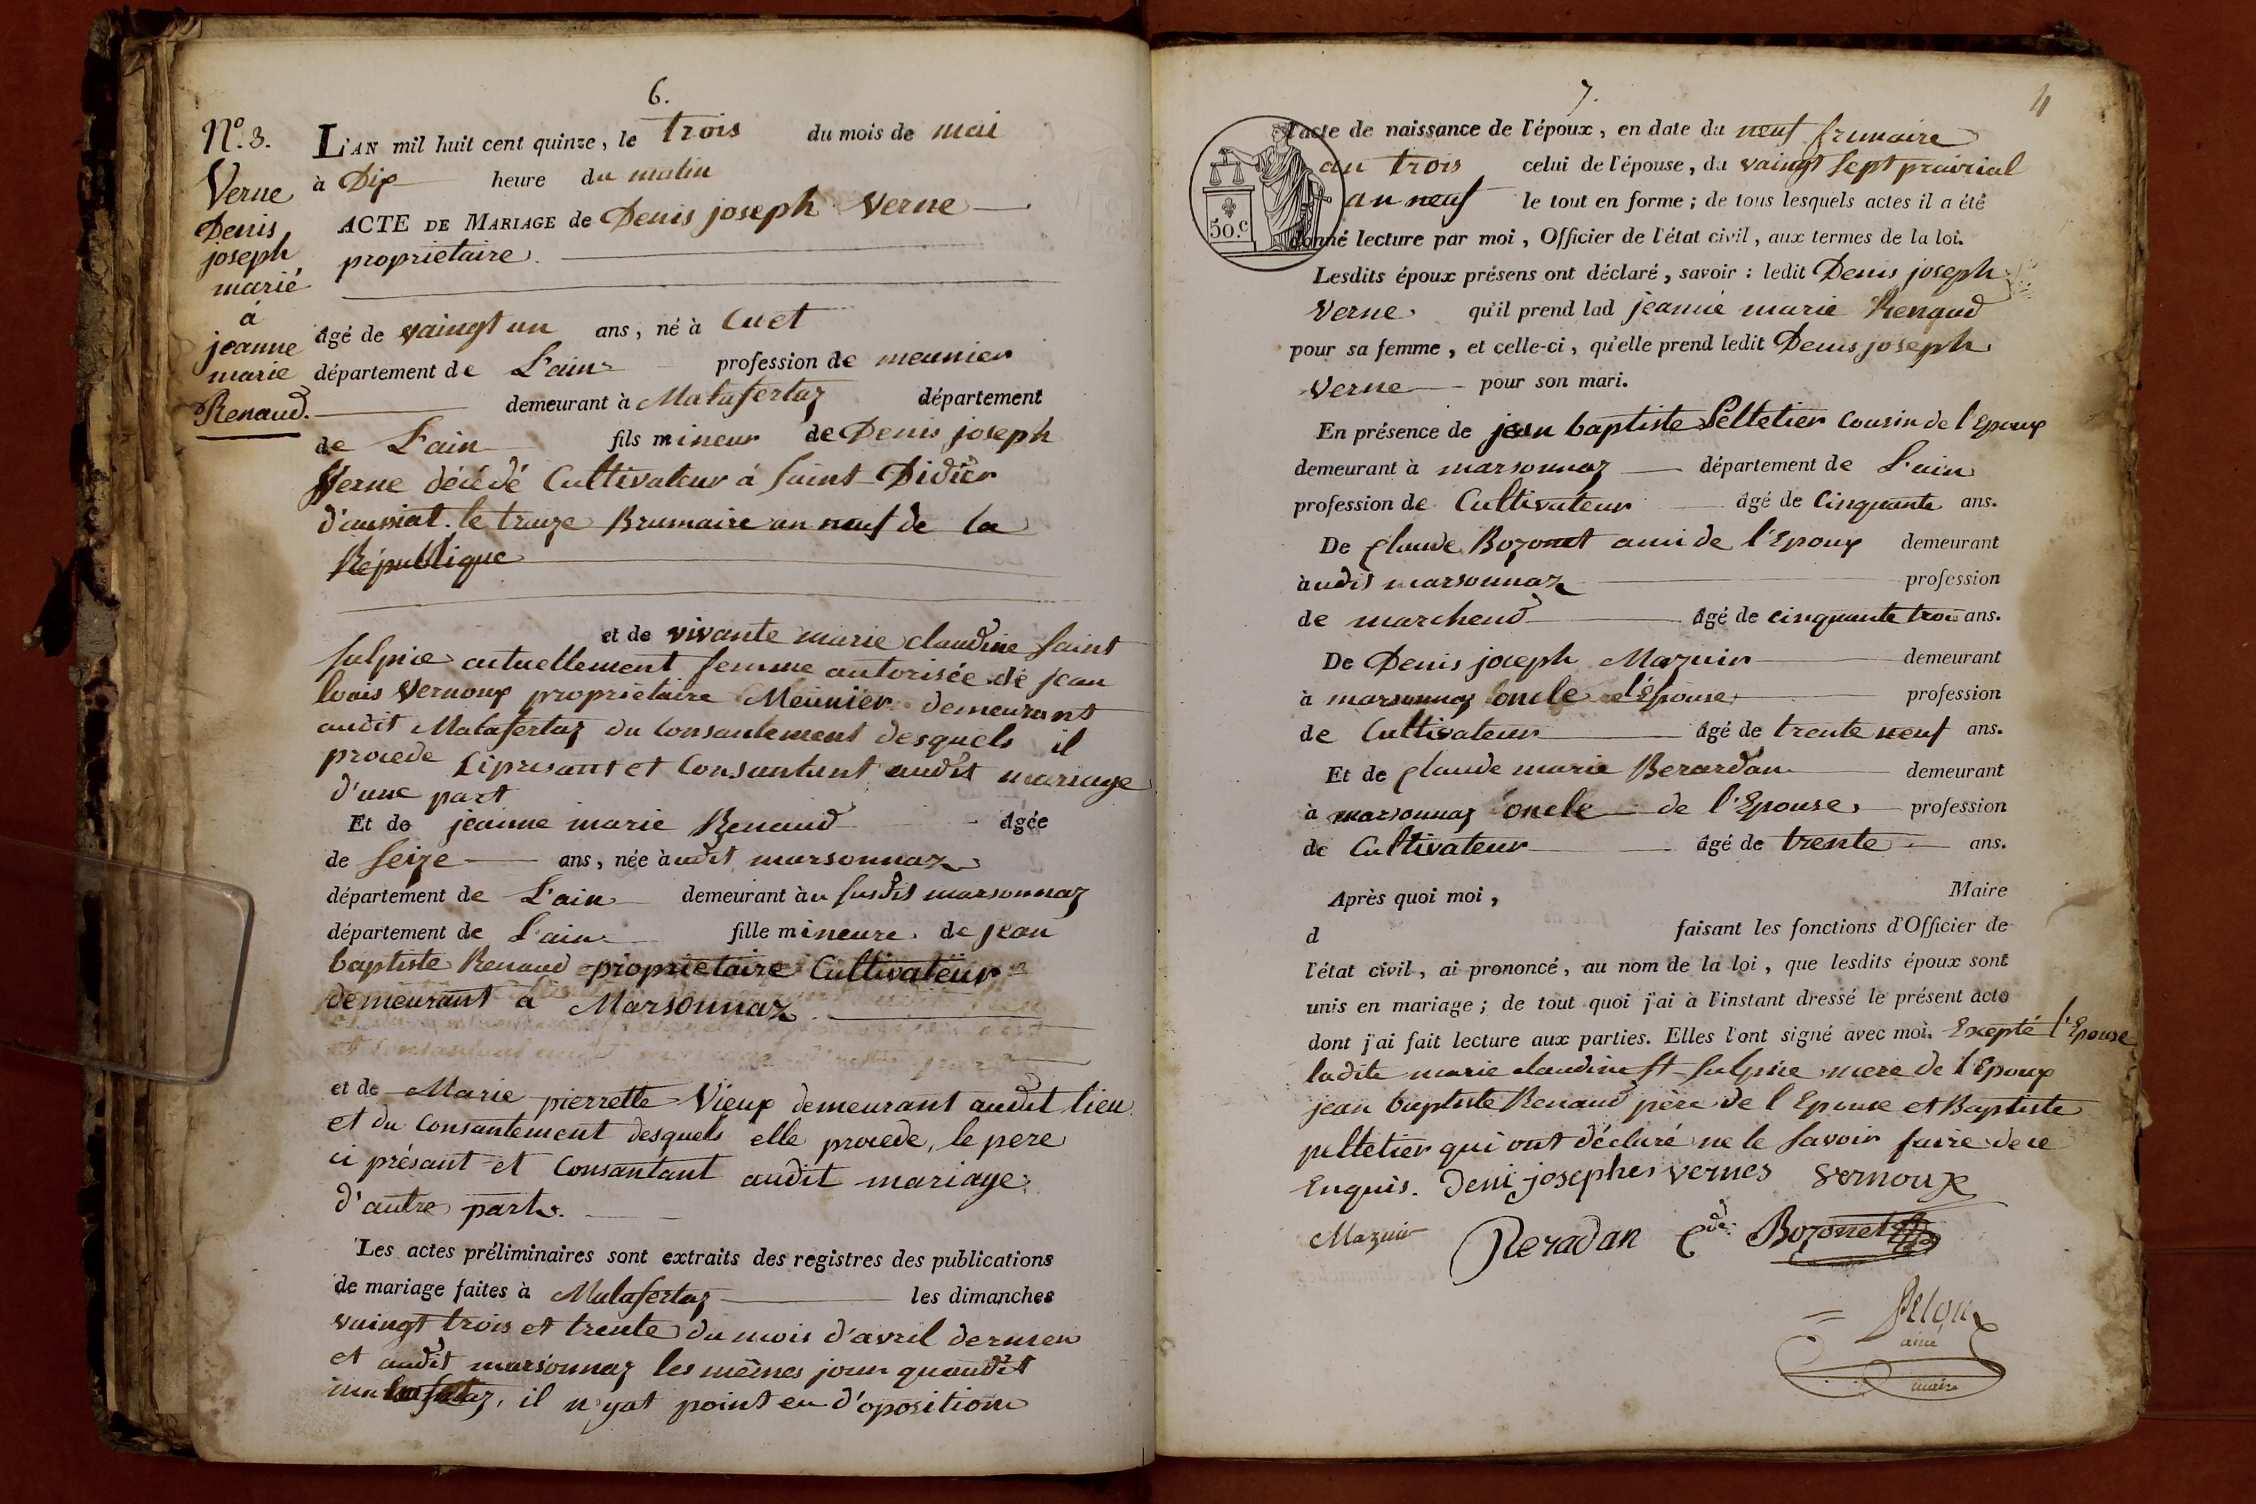 6.
N.º 3.
Verne
Denis
joseph
marié
à
jeanne
marie
Renaud.
L'AN mil huit cent quinze, le trois du mois de mai
à Dix heure du matin
ACTE DE MARIAGE de Denis joseph Verne
propriétaire.
âgé de vaingt un ans, né à Cuet
département de L'ain profession de meunier
demeurant à Malafertaz département
de L'ain fils mineur de Denis joseph
Verne décédé Cultivateur à Saint Didier
d'aussiat. le traize Brumaire an neuf de la
République
et de vivante marie claudine Saint
Sulpice actuellement femme autorisée de jean
louis Vernoux propriétaire Meunier demeurant
audit Malafertaz du consantement desquels il
procede Ci présant et Consantant audit mariage
d'une part
Et de jeanne marie Renaud âgée
de Seize ans, née àudit marsonnaz
département de L'ain demeurant àu susdit marsonnaz
département de L'ain fille mineure de jean
baptiste Renaud propriétaire Cultivateur
demeurant à Marsonnaz
et de Marie pierrette Vieux demeurant audit lieu
et du Consantement desquels elle procede, le pere
ci présant et Consantant audit mariage
d'autre part.
Les actes préliminaires sont extraits des registres des publications
de mariage faites à Malafertaz les dimanches
vaingt trois et trente du mois d'avril dernier
et audit marsonnaz les mêmes jour quaudit
malafertaz, il n'yat point eu d'oposition
7.
4
50.c
l'acte de naissance de l'époux, en date du neuf frimaire
an trois celui de l'épouse, du vaingt sept prairial
an neuf le tout en forme; de tous lesquels actes il a été
donné lecture par moi, Officier de l'état civil, aux termes de la loi.
Lesdits époux présens ont déclaré, savoir: ledit Denis joseph
Verne qu'il prend lad jeanne marie Renaud
pour sa femme, et celle-ci, qu'elle prend ledit Denis joseph
Verne pour son mari.
En présence de jean baptiste Peltetier cousin de l'Epoux
demeurant à marsonnaz département de L'ain
profession de Cultivateur âgé de Cinquante ans.
De Claude Bozonet ami de l'Epoux demeurant
àudit marsonnaz profession
de marchend âgé de cinquante trois ans.
De Denis joseph Mazuir demeurant
à marsonnaz oncle de l'Epouse profession
de Cultivateur âgé de trente neuf ans.
Et de Claude marie Berardan demeurant
à marsonnaz oncle de l'Epouse profession
de Cultivateur âgé de trente ans.
Après quoi moi, Maire
d faisant les fonctions d'Officier de
l'état civil, ai prononcé, au nom de la loi, que lesdits époux sont
unis en mariage; de tout quoi j'ai à l'instant dressé le présent acte
dont j'ai fait lecture aux parties. Elles l'ont signé avec moi. Excepté l'Epouse
ladite marie claudine St Sulpice mere de l'Epoux
jean baptiste Renaud père de l'Epouse et Baptiste
peltetier qui ont déclaré ne le savoir faire de ce
Enquis. Deni josephes vernes vernoux
Mazuir Beradan Cde Bozonet
Pelon
ainé
maire